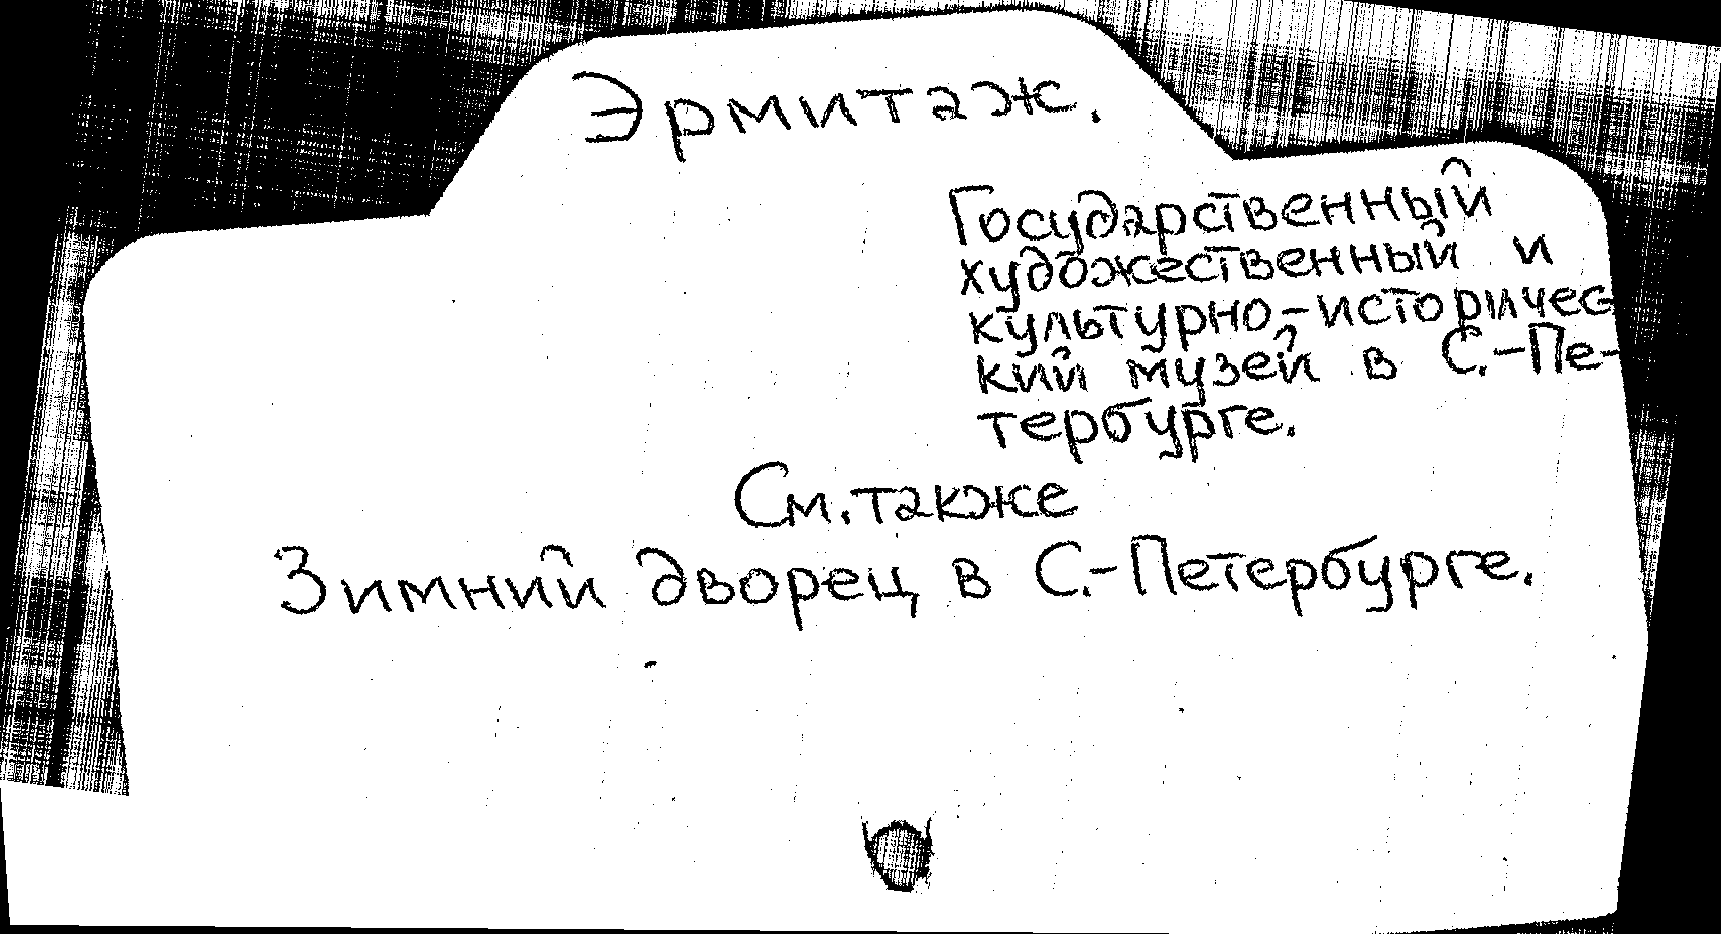 Эрмитаж.
Государственный
художественный и
культурно-историчес-
кий музей в С.-Пе-
тербурге.
См. также
Зимний дворец в С.-Петербурге.